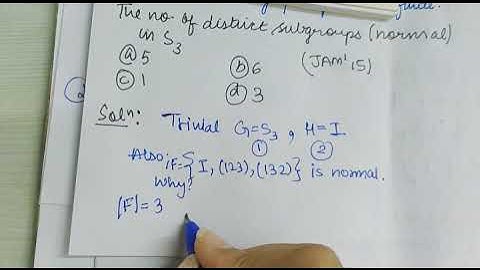 The no. of distinct subgroups (normal)
in S₃
ⓐ 5 ⓑ 6 (JAM' 15)
ⓒ 1 ⓓ 3
Solⁿ: Trivial G=S₃, H=I
① ②
Also, F={I, (123), (132)} is normal.
Why?
|F|=3